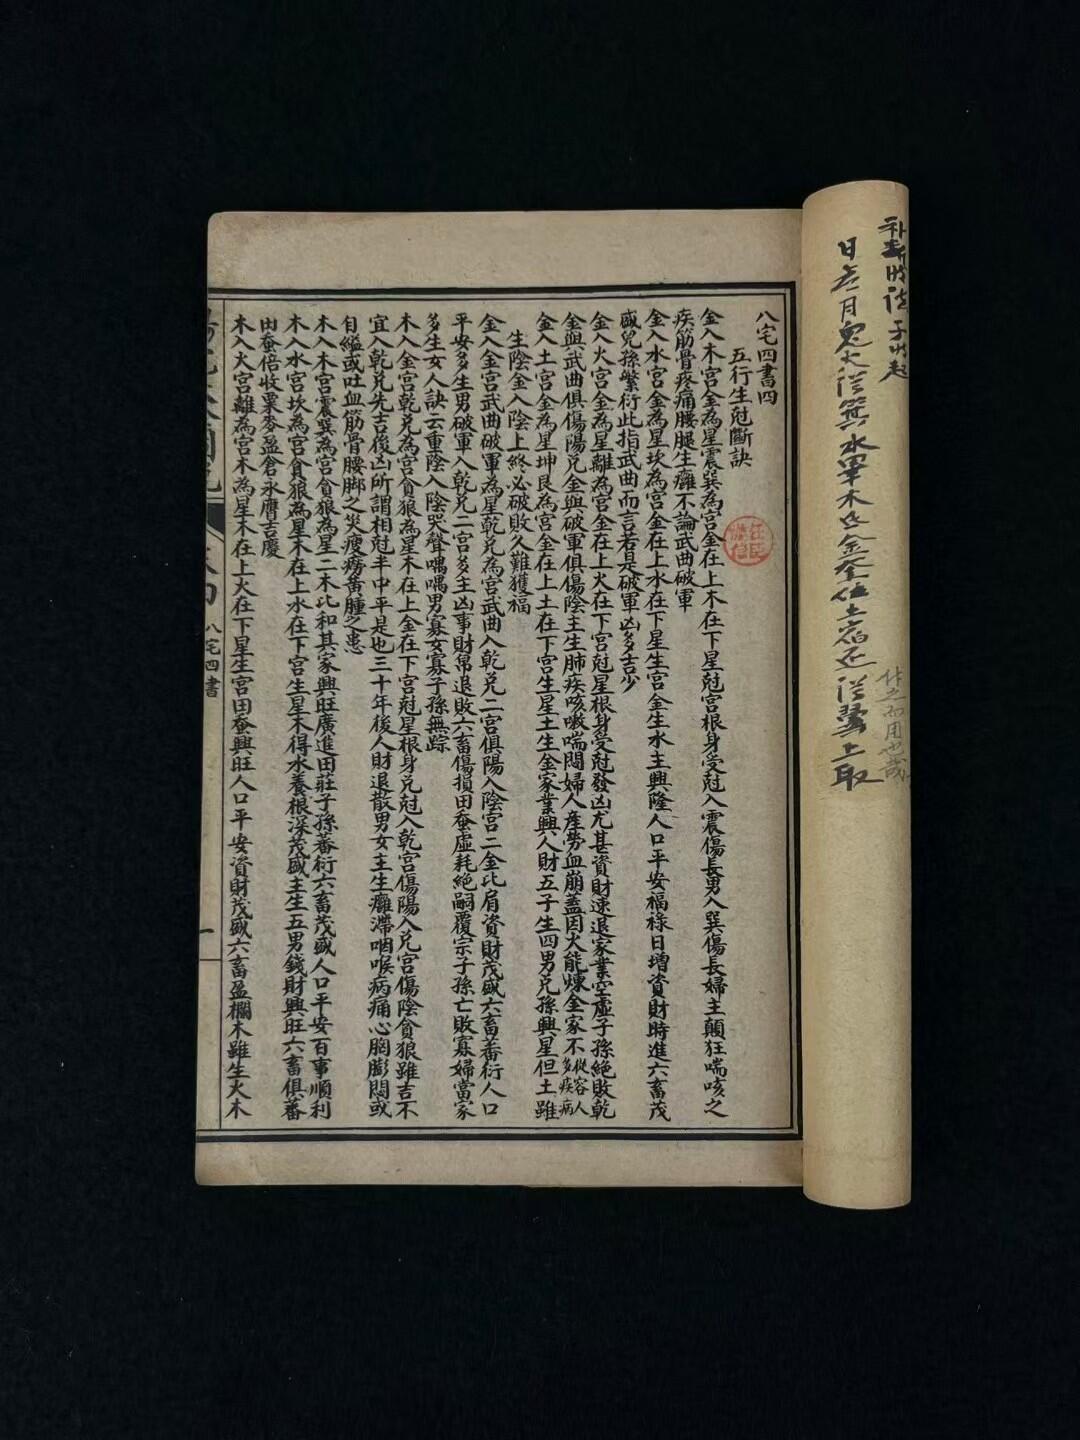 日虛月鬼火從箕水畢木氐金奎位土宿还從翼上取
八宅四書四
五行生尅斷訣
金入木宮金為星震巽為宮金在上木在下星尅宮根身受尅入震傷長男入巽傷長婦主顛狂喘咳之
疾筋骨疼痛腰腿生癱不論武曲破軍
金入水宮金為星坎為宮金在上水在下星生宮金生水主興隆人口平安福祿日增資財時進六畜茂
盛兒孫繁衍此指武曲而言若是破軍凶多吉少
金入火宮金為星離為宮金在上火在下宮尅星根身受尅發凶尤甚資財速退家業空虛子孫絕敗乾
金與武曲俱傷陽兌金與破軍俱傷陰主生肺疾咳嗽喘悶婦人產勞血崩蓋因火能煉金家不從容人多疾病
金入土宮金為星坤艮為宮金在上土在下宮生星土生金家業興人財五子生四男兒孫興星但土雖
生陰金入陰上終必破敗久難獲福
金入金宮武曲破軍為星乾兌為宮武曲入乾兌二宮俱陽入陰宮二金比肩資財茂盛六畜蕃衍人口
平安多生男破軍入乾兌二宮多主凶事財帛退敗六畜傷損田蚕虛耗絕嗣覆宗子孫亡敗寡婦當家
多生女人訣云重陰入陰哭聲喁喁男寡女寡子孫無踪
木入金宮乾兌為宮貪狼為星木在上金在下宮尅星根身兌尅入乾宮傷陽入兌宮傷陰貪狼雖吉不
宜入乾兌先吉後凶所謂相尅半中平是也三十年後人財退散男女主生癱滯咽喉病痛心胸膨悶或
自縊或吐血筋骨腰腳之災瘦癆黃腫之患
木入木宮震巽為宮貪狼為星二木比和其家興旺廣進田莊子孫蕃衍六畜茂盛人口平安百事順利
木入水宮坎為宮貪狼為星木在上水在下宮生星木得水養根深茂盛主生五男錢財興旺六畜俱蕃
田蚕倍收粟麥盈倉永膺吉慶
木入火宮離為宮木為星木在上火在下星生宮田蚕興旺人口平安資財茂盛六畜盈欄木雖生火木
八宅四書
一